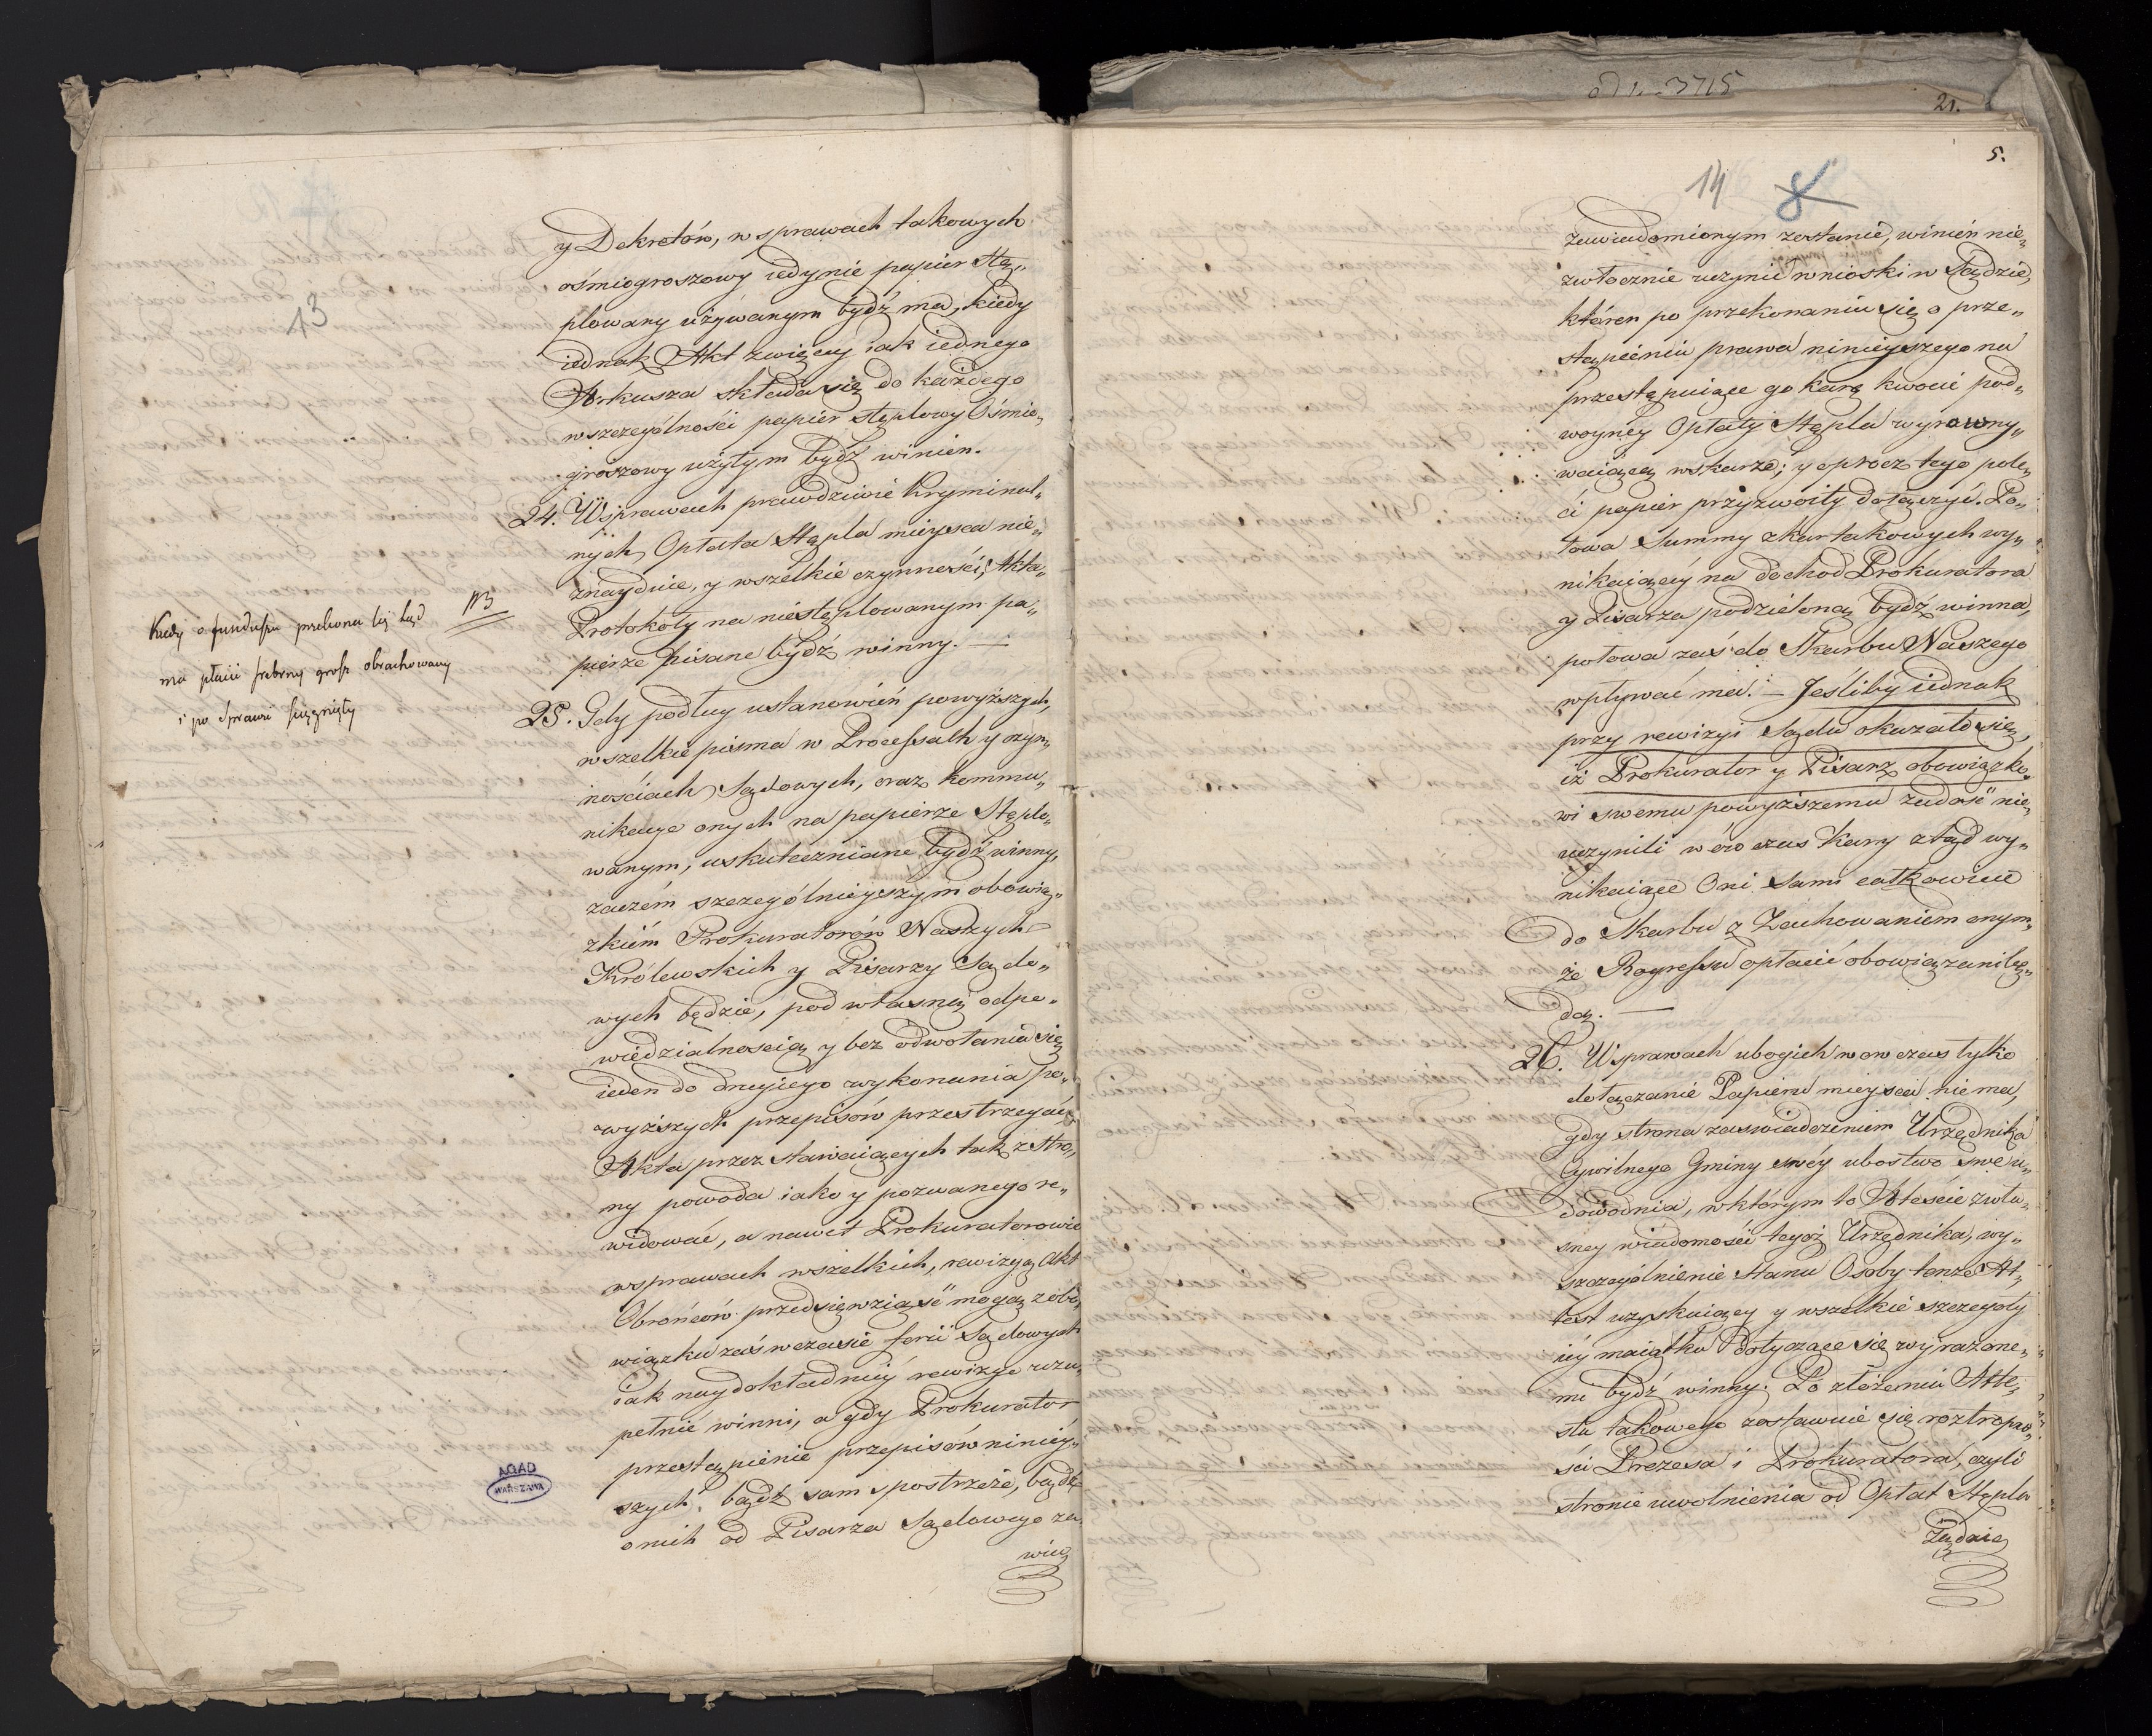 13
y Dekretów, w sprawach takowych
ośmiogroszowy iedynie papier stę„
plowany używanym bydź ma, kiedy
iednak Akt zwięcey iak iednego
Arkusza składa się do każdego
wszczególności papier stęplowy Ośmio„
groszowy użytym bydź winien.
24. Wsprawach prawdziwie Kryminal„
nych, Opłata Stępla mieysca nie„
znayduie, y wszelkie czynności, Akta
Protokoły na niestęplowanym pa„
pierze pisane bydź winny. —
NB
Kiedy o funduszu przekona się Sąd
ma płacić srebrny grosz obrachowany
i po sprawie ściągnięty
25. Gdy podług ustanowień powyższych,
wszelkie pisma w Processach y czyn„
nościach Sądowych, oraz kommu„
nikacye onych na papierze Stęplo„
wanym, uskuteczniane bydź winny,
zaczém szczególnieyszym obowią„
zkiém Prokuratorów Naszych
Królewskich y Pisarzy Sądo„
wych będzie, pod własną odpo„
wiedzialnością y bez odwołania się
ieden do drugiego wykonania po„
wyższych przepisów przestrzegać
Akta przez stawaiących tak z Stro„
ny powoda iako y pozwanego re„
widować, a nawet Prokuratorowie
wsprawach wszelkich, rewizyą Akt
Obrońców przedsięwziąść mogą, z obo„
wiązku zaś wczasie ferii Sądowych
iak naydokładniéy rewizye uzu„
pełnić winni, a gdy Prokurator
przestąpienie przepisów niniéy„
szych, bądź sam spostrzeże, bądź
onich od Pisarza Sądowego za„
wia
AGAD
WARSZAWA
od 1. - 3715
21.
5.
14 8
zawiadomionym zostanie, winien nie„
zwłocznie uczynić wnioski w Sądzie,
któren po przekonaniu się o prze„
stąpieniu prawa ninieyszego na
przestępuiące go karę kwocie pod„
wóyney Opłaty Stępla wyrówny„
waiącą wskarze; y oprocz tego pole„
ci papier przyzwoity dołączyć. Po„
łowa Summy z kar takowych wy„
nikaiący na dochod Prokuratora
y Pisarza podzieloną bydź winna,
połowa zaś do Skarbu Naszego
wpływać ma. — Jeśliby iednak
przy rewizyi Sądu okazało się,
iż Prokurator y Pisarz obowiązko„
wi swemu powyższemu zadość nie„
uczynili w ów czas Kary ztąd wy„
nikaiące Oni sami całkowicie
do Skarbu z Zachowaniem onym„
że Regressu opłacić obowiązani bę„
dą. —
26. Wsprawach ubogich wowczas tylko
dołączanie Papieru mieysca niema,
gdy strona zaświadczeniem Urzędnika
Cywilnego Gminy swéy ubostwo swe u„
dowodnia, wktórym to Atteście zwła„
sney wiadomości tegoż Urzędnika, wy„
szczególnienie Stanu Osoby tenże At„
test uzyskuiącey y wszelkie szczegoły
iéy maiątku dotyczące się wyrażone„
mi bydź winny. Po złożeniu Atte„
stu takowego zostawuie się roztropno„
ści Prezesa i Prokuratora, czyli
stronie uwolnienia od Opłat Stępla
Żądaią